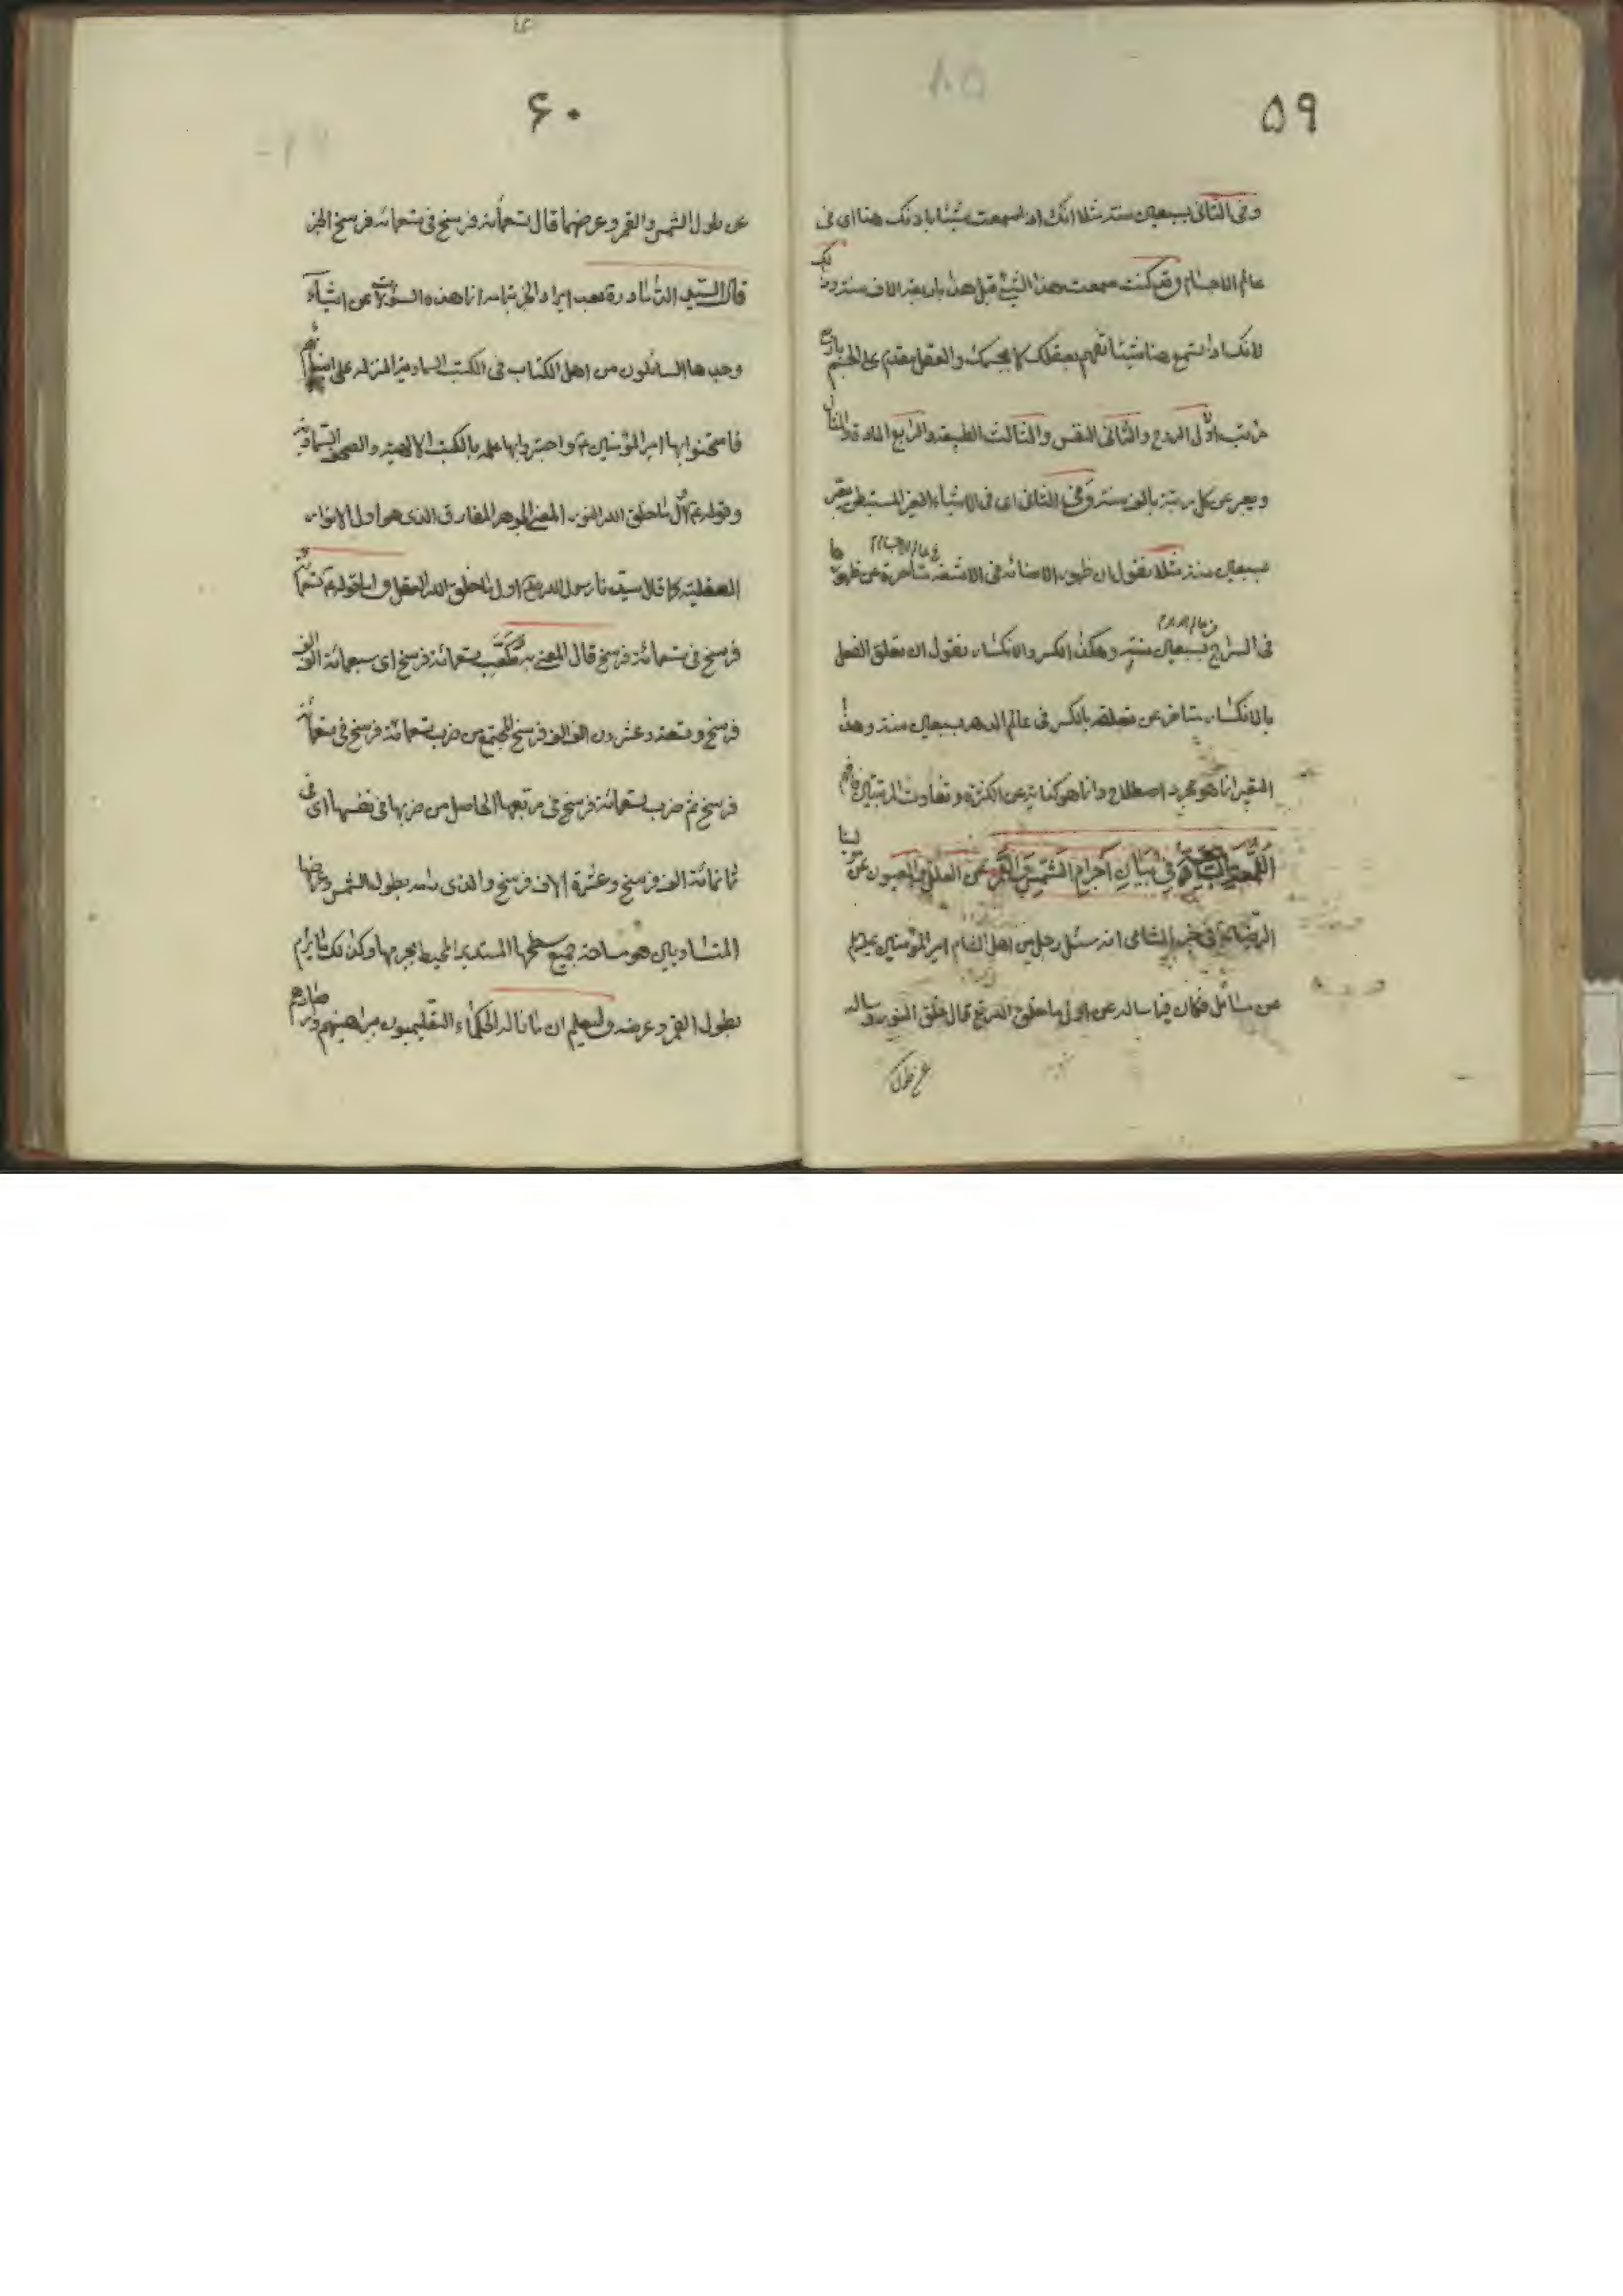 ۵۹
وفی الثانی بسبعین سنة مثلا انک اذا سمعت شیئا باذنک هنا ای فی
عالم الاجسام وقع کنت سمعت هذا الشیئ قبل هذا باربعة الاف سنة وذلک
لانک اذا تسمع هنا شیئا تفهم بعقلک لا بجسمک والعقل مقدم علی الجسم باربع
مراتب اولی الروح والثانی النفس والثالث الطبیعة والرابع المادة والمثال
ویعبر عن کل رتبة بالف سنة وفی الثانی ای فی الاشیاء الغیر المستبطن یعبر
بسبعین سنة مثلا نقول ان ظهور الاضائة فی الاشعة متأخرة عن ظهورها
فی السراج بسبعین سنة وهکذا الکسر والانکسار نقول ان تعلق الفعل
بالانکسار متاخر عن تعلقه بالکسر فی عالم الدهر بسبعین سنة وهذا
التعبیر انما هو مجرد اصطلاح وانما هو کنایة عن الکثرة وتفاوت المرتبتین فافهم
اللمعة فی بیان اجرام الشمس والقمر عن العلل والعیون عن
الرضا فی خبر الشامی انه سئل رجل من اهل الشام امیر المؤمنین علیه السلم
عن مسائل فکان فیما ساله عن اول ما خلق الله تع قال خلق النور وساله
عن طول
۶۰
عن طول الشمس والقمر وعرضهما قال تسعمأئة فرسخ فی تسعمائة فرسخ الخبر
قال السید الداماد ره بعد ایراد الخبر بتمامه انما هذه السؤالات عن اشیآء
وجدها السائلون من اهل الکتاب فی الکتب السماویة المنزلة علی انبیائهم
فامتحنوا بها امیر المؤمنین ع واختبروا بها علمه بالکتب الالهیة والصحف السماویة
وقوله ع اول ما خلق الله النور المعنی الجوهر المفارق الذی هو اول الانوار
العقلیة کما قال سیدنا رسول الله ص اول ما خلق الله العقل واما قوله ع تسعمائة
فرسخ فی تسعمائة فرسخ قال المعنی به مکعب تسعمائة فرسخ ای سبعمائة الف الف
فرسخ وتسعة وعشرون الف الف فرسخ المجتمع من ضرب تسعمائة فرسخ فی تسعمأئة
فرسخ ثم ضرب تسعمائة فرسخ فی مربعها الحاصل من ضربها فی نفسها ای فی
ثمانمائة الف فرسخ وعشرة الاف فرسخ والذی رامه بطول الشمس وعرضها
المتساویین هو مساحة جمیع سطحها المستدیر المحیط بجرمها وکذلک ما یرام
بطول القمر وعرضه ولیعلم ان ما ناله الحکماء التعلیمیون ببراهینهم